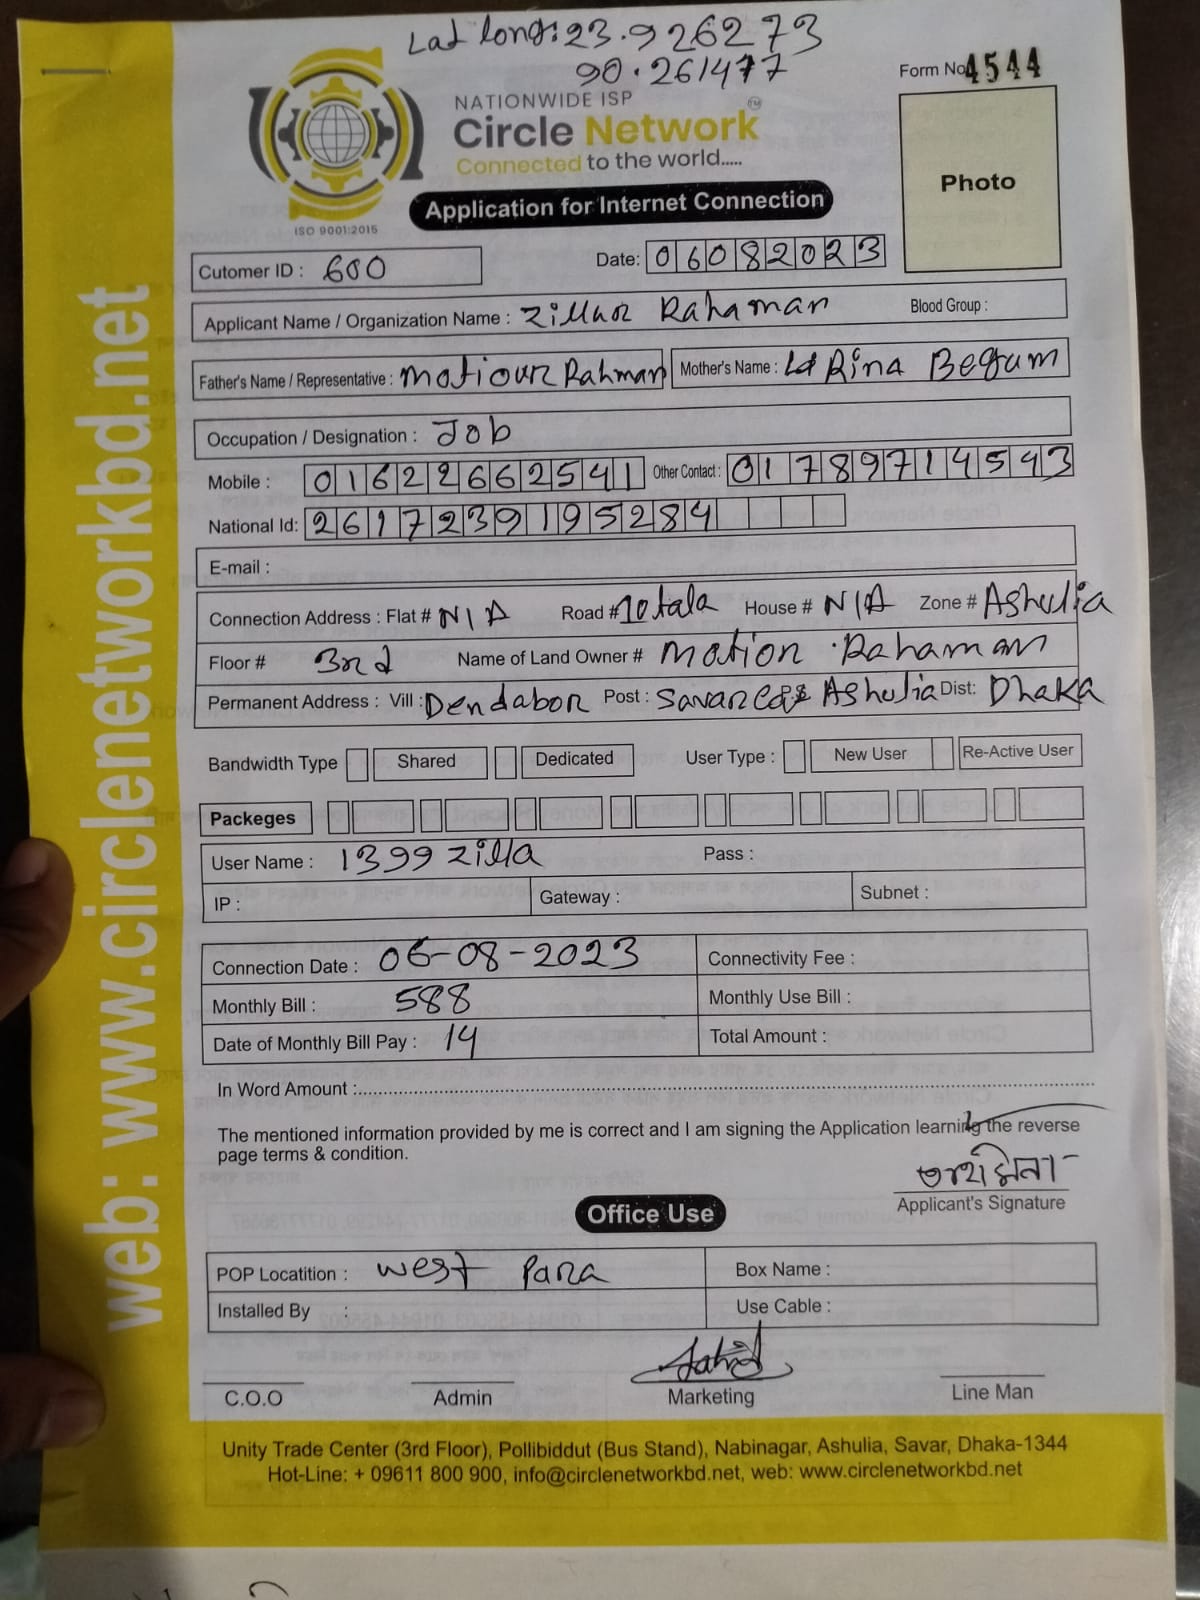 Lat long: 23.926273
90.261477
Form No 4544
NATIONWIDE ISP
Circle Network TM
Connected to the world.....
Photo
Application for Internet Connection
ISO 9001:2015
Cutomer ID : 600
Date: 06082023
Applicant Name / Organization Name : Zillur Rahaman Blood Group :
Father's Name / Representative : Motiour Rahman Mother's Name : Rina Begum
Occupation / Designation : Job
Mobile : 01622662541 Other Contact : 01789714543
National Id: 2617239195284
E-mail :
Connection Address : Flat # N/A Road # 10tala House # N/A Zone # Ashulia
Floor # 3rd Name of Land Owner # Motion Rahaman
Permanent Address : Vill : Dendabor Post : Savar Ashulia Dist: Dhaka
Bandwidth Type Shared Dedicated User Type : New User Re-Active User
Packeges
User Name : 1399 zilla Pass :
IP : Gateway : Subnet :
Connection Date : 06-08-2023 Connectivity Fee :
Monthly Bill : 588 Monthly Use Bill :
Date of Monthly Bill Pay : 14 Total Amount :
In Word Amount :
The mentioned information provided by me is correct and I am signing the Application learning the reverse
page terms & condition.
Applicant's Signature
Office Use
POP Locatition : West Para Box Name :
Installed By : Use Cable :
C.O.O Admin Marketing Line Man
Unity Trade Center (3rd Floor), Pollibiddut (Bus Stand), Nabinagar, Ashulia, Savar, Dhaka-1344
Hot-Line: + 09611 800 900, info@circlenetworkbd.net, web: www.circlenetworkbd.net
web: www.circlenetworkbd.net